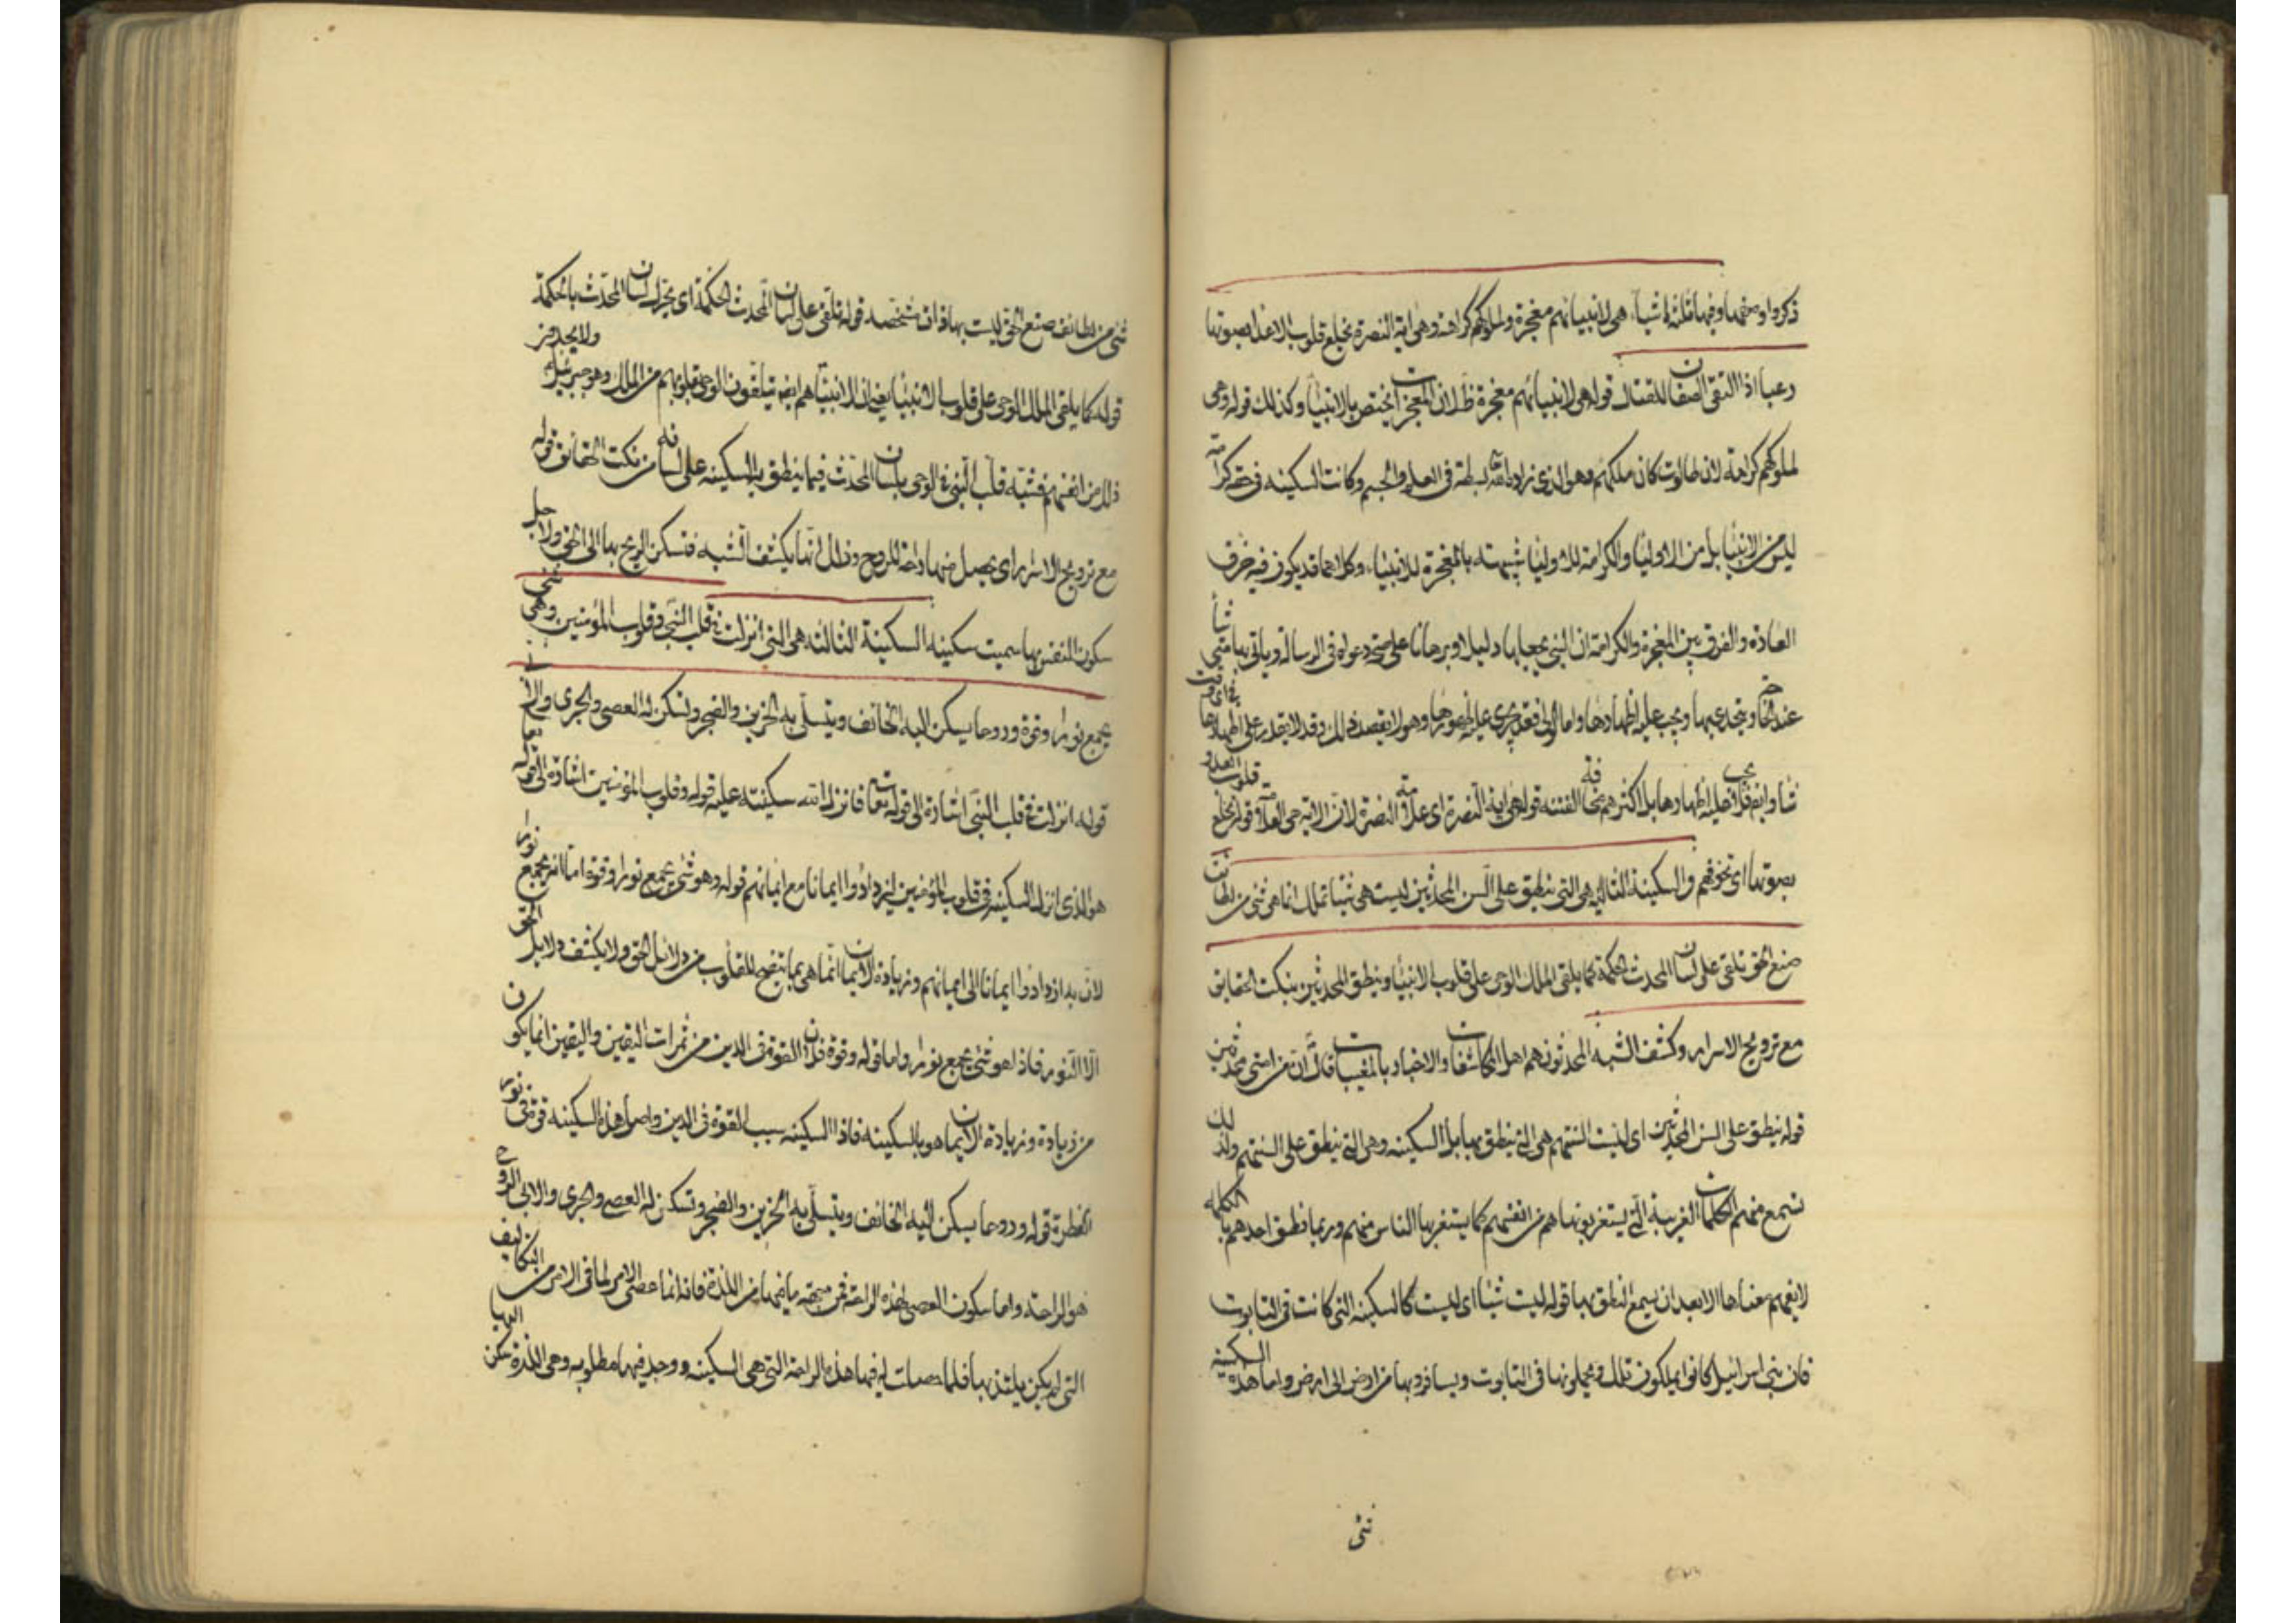 ذكروا وصفها وفيها ثلثة اشيآء هى لانبيائهم معجزة ولملوكهم كرامة وهى اية النصرة تخلع قلوب الاعداء بصوتها
رعبا اذا التقى الصفان للقتال قوله هى لانبيائهم معجزة ظ لان المعجزات يختص بالانبيآ وكذلك قوله وهى
لملوكهم كرامة لان طالوت كان ملكهم وهو الذى زاده الله بسطة فى العلم والجسم وكانت السكينه فى حقه كرامة
ليس من الانبيآ بل من الاوليا والكرامة للاوليا شبيهة بالمعجزة للانبيآء وكلاهما قد يكون فيه خرق
العادة والفرق بين المعجزة والكرامة ان النبى يجعلها دليلا وبرهانا على صحة دعواه فى الرسالة وياتى بها متى شآ
عند ويتحدى بها ويجب عليه اظهارها واما الولى فقد يجرى عليه ظهورها وهو لا يقصد ذلك وقد لا يقدر على اظهارها فى اى وقت
شا وايضا فلا يجب عليه اظهارها بل اكثرهم يخاف الفتنة قوله هى اية النصرة اى علامة النصرة لان الاية هى العلامة قوله تخلع قلوب العدو
بصوتها اى تخوفهم والسكينة الثانيه هى التى تنطق على السن المحدثين ليست هى شيئا تملك انما هى شئ من لطائف
صنع الحق تلقى على لسان المحدث الحكمة كما يلقى الملك الوحى على قلوب الانبيآ وينطق المحدثين بنكت الحقايق
مع ترويح الاسرار وكشف الشبه المحدثون هم اهل المكاشفات والاخبار بالمغيبات قال ان من امتى محدثين
قوله تنطق على السن المحدثين اى ليست السنتهم هى التى تنطق بها بل السكينه وهى التى تنطق على السنتهم ولذلك
تسمع منهم الكلمات الغريبة التى يستغربونها هم من انفسهم كما يستغربها الناس منهم وربما نطق احدهم بالكلمة
لا يفهم معناها الا بعد ان يسمع الناطق بها قوله ليست شيئا اى ليست كالسكينه التى كانت فى التابوت
فان بنى اسرائيل كانوا يملكون تلك ويجعلونها فى التابوت ويسافر بها من ارض الى ارض واما هذه السكينة
شئ
شئ من لطائف صنع الحق ليست بها ذات شخصه قوله تلقى على لسان المحدث الحكمة اى تحرك لسان المحدث بالحكمة
قوله كما يلقى الملك الوحى على قلوب الانبيآ يعنى ان الانبيآ هم ايضا يتلقون الوحى بقلوبهم من الملك وهو جبرئيل ولا يجد من
ذلك من انفسهم فشبه قلب النبى فى الوحى بلسان المحدث فيما ينطق به السكينه على لسانه من نكت الحقائق قوله
مع ترويح الاسرار اى يحصل منها راحة للروح وذلك انها يكشف الشبه فتسكن الروح بها الى الحق ولاجل
سكون النفس بها سميت سكينه السكينة الثالثه هى التى انزلت فى قلب النبى وقلوب المؤمنين وهى شئ
يجمع نورا وقوة وروحا يسكن اليه الخائف ويتسلى به الحزين والضجر وتسكن له العصى والجرى والابى
قوله انزلت فى قلب النبى اشارة الى قوله تعا فانزل الله سكينته عليه قوله وقلوب المؤمنين اشارة الى قوله تعا
هو الذى انزل السكينه فى قلوب المؤمنين ليزدادوا ايمانا مع ايمانهم قوله وهو شئ يجمع نورا وقوة اما انه يجمع نورا
لان به ازدادوا ايمانا الى ايمانهم وزيادة الايمان انما هى بما يتضح للقلوب من دلائل الحق ولا يكشف دلايل الحق
الا النور فاذا هو شئ يجمع نورا واما قوله وقوة فلان القوة فى الدين من ثمرات اليقين واليقين انما يكون
من زيادة وزيادة الايمان هو بالسكينه فاذا السكينه سبب القوة فى الدين واصل هذه السكينه قوة فى نور
الفطرة قوله وروحا يسكن اليه الخائف ويتسلى به الحزين والضجر وتسكن له العصى والجرى والابى الروح
هو الراحة واما سكون العصى لهذه الراحة فمن جهة ما فيها من اللذة فانه انما عصى الامر لما فى الامر من التكاليف
التى لم يكن يلتذ بها فلما حصلت له فيها هذه الراحة التى هى السكينه ووجد فيها مطلوبه وهى اللذة سكن اليها